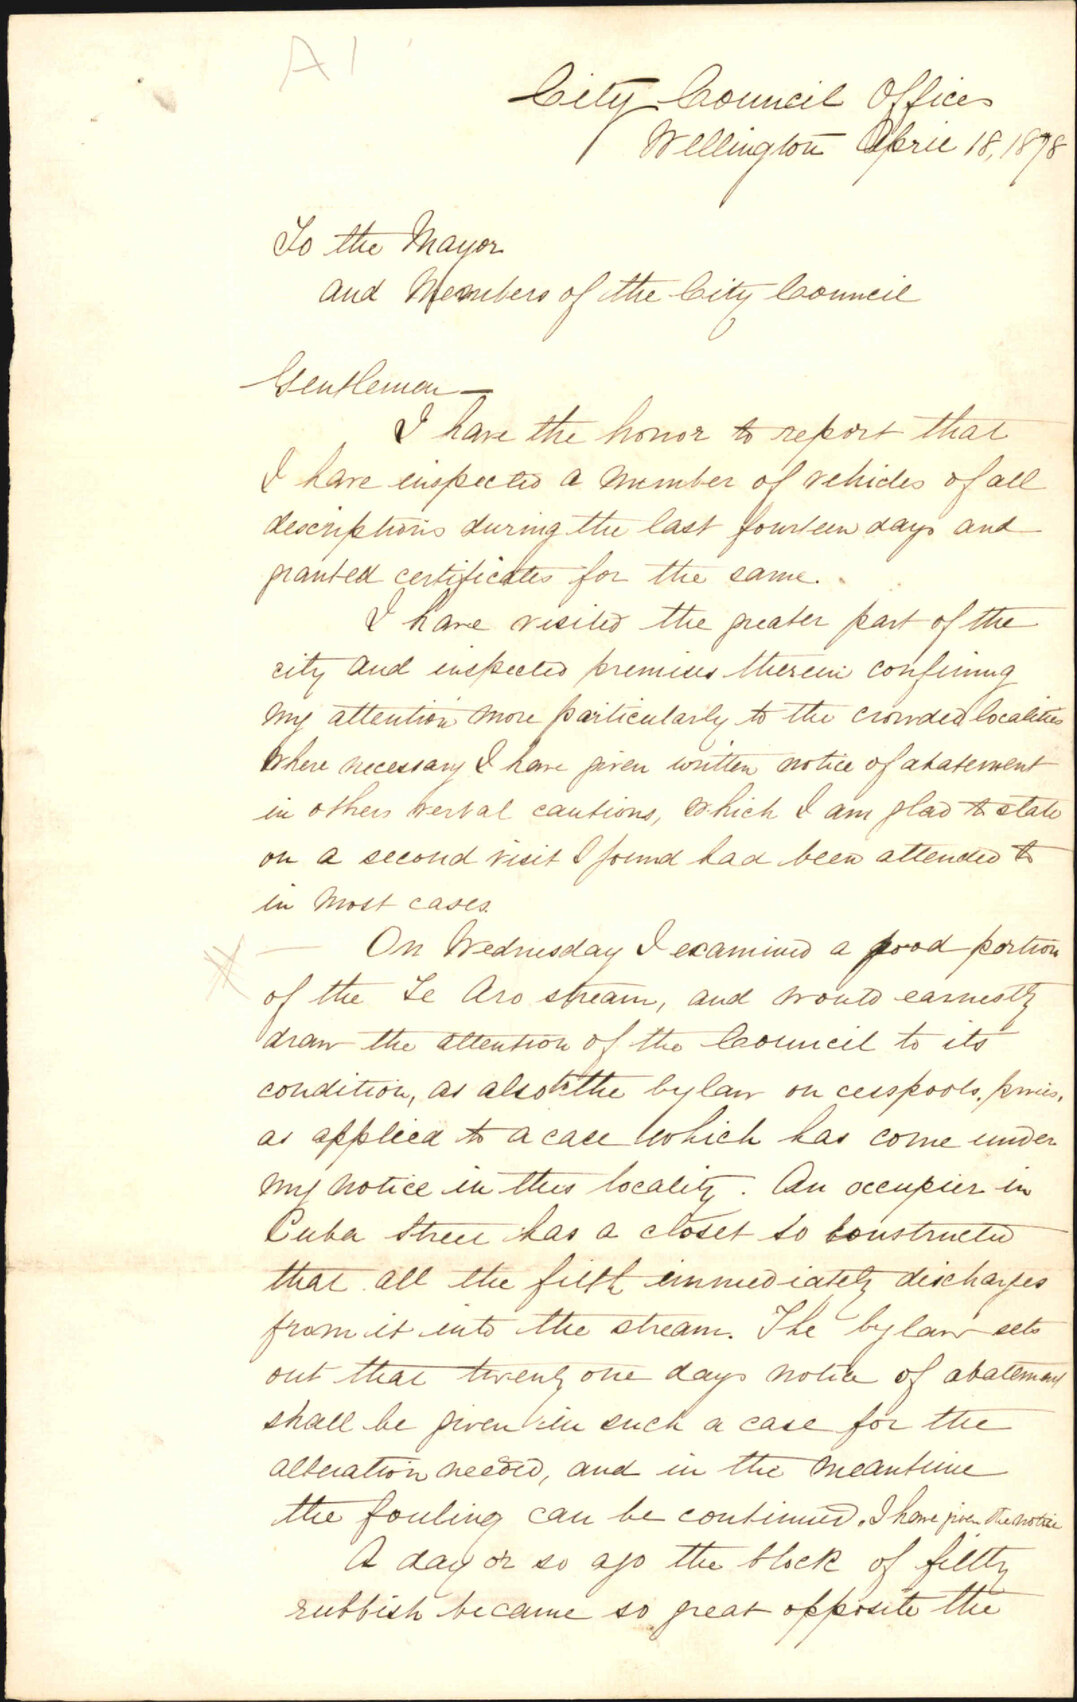 A1
City Council Offices
Wellington April 18, 1878
To the Mayor
and Members of the City Council
Gentlemen —
I have the honor to report that
I have inspected a number of vehicles of all
descriptions during the last fourteen days and
granted certificates for the same.
I have visited the greater part of the
city and inspected premises therein confining
my attention more particularly to the crowded localities
Where necessary I have given written notice of abatement
in others verbal cautions, which I am glad to state
on a second visit I found had been attended to
in most cases.
On Wednesday I examined a good portion
of the Te Aro stream, and would earnestly
draw the attention of the Council to its
condition, as also to the bylaw on cesspools, privies,
as applied to a case which has come under
my notice in this locality. An occupier in
Cuba Street has a closet so constructed
that all the filth immediately discharges
from it into the stream. The bylaw sets
out that twenty one days notice of abatement
shall be given in such a case for the
alteration needed, and in the meantime
the fouling can be continued. I have given the notice
A day or so ago the block of filthy
rubbish became so great opposite the